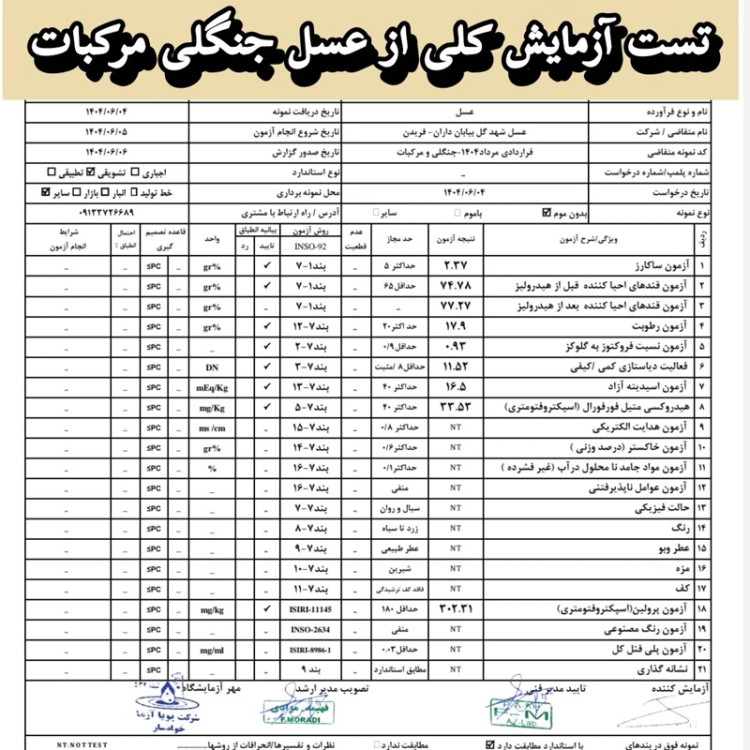 تست آزمایش کلی از عسل جنگلی مرکبات
نام و نوع فرآورده عسل تاریخ دریافت نمونه ۱۴۰۴/۰۶/۰۴
نام متقاضی / شرکت عسل شهد گل بیابان داران- فریدن تاریخ شروع انجام آزمون ۱۴۰۴/۰۶/۰۵
کد نمونه متقاضی قراردادی مرداد۱۴۰۴-جنگلی و مرکبات تاریخ صدور گزارش ۱۴۰۴/۰۶/۰۶
شماره پلمپ/شماره درخواست - نوع استاندارد اجباری □ تشویقی ☑ تطبیقی □
تاریخ درخواست ۱۴۰۴/۰۶/۰۴ محل نمونه برداری خط تولید □ انبار □ بازار □ سایر ☑
نوع نمونه بدون موم ☑ باموم □ سایر □ آدرس / راه ارتباط با مشتری ۰۹۱۳۳۷۲۶۶۸۹
ردیف ویژگی/شرح آزمون نتیجه آزمون حد مجاز عدم قطعیت روش آزمون INSO-92 بیانیه انطباق تایید رد واحد قاعده تصمیم گیری احتمال انطباق % شرایط انجام آزمون
۱ آزمون ساکارز ۲.۳۷ حداکثر ۵ - بند۱-۷ ✓ - gr% - ≤PC - -
۲ آزمون قندهای احیا کننده قبل از هیدرولیز ۷۴.۷۸ حداقل۶۵ - بند۱-۷ ✓ - gr% - ≤PC - -
۳ آزمون قندهای احیا کننده بعد از هیدرولیز ۷۷.۲۷ - - بند۱-۷ - - gr% - ≤PC - -
۴ آزمون رطوبت ۱۷.۹ حد اکثر۲۰ - بند۷-۱۲ ✓ - gr% - ≤PC - -
۵ آزمون نسبت فروکتوز به گلوکز ۰.۹۳ حداقل۰/۹ - بند۷-۲ ✓ - - - ≤PC - -
۶ فعالیت دیاستازی کمی /کیفی ۱۱.۵۲ حداقل۸ /مثبت - بند۷-۳ ✓ - DN - ≤PC - -
۷ آزمون اسیدیته آزاد ۱۶.۵ حداکثر ۴۰ - بند۷-۱۳ ✓ - mEq/Kg - ≤PC - -
۸ هیدروکسی متیل فورفورال (اسپکتروفتومتری) ۳۳.۵۳ حداکثر ۴۰ - بند۷-۵ ✓ - mg/Kg - ≤PC - -
۹ آزمون هدایت الکتریکی NT حداکثر ۰/۸ - بند۷-۱۵ - - ms /cm - ≤PC - -
۱۰ آزمون خاکستر (درصد وزنی ) NT حداکثر۰/۶ - بند۷-۱۴ - - gr% - ≤PC - -
۱۱ آزمون مواد جامد نا محلول درآب (غیر فشرده ) NT حداکثر۰/۱ - بند۷-۱۶ - - % - ≤PC - -
۱۲ آزمون عوامل ناپذیرفتنی NT منفی - بند۷-۱۶ - - - - ≤PC - -
۱۳ حالت فیزیکی NT سیال و روان - بند۷-۷ - - - - ≤PC - -
۱۴ رنگ NT زرد تا سیاه - بند۷-۸ - - - - ≤PC - -
۱۵ عطر وبو NT عطر طبیعی - بند۷-۹ - - - - ≤PC - -
۱۶ مزه NT شیرین - بند۷-۱۰ - - - - ≤PC - -
۱۷ کف NT فاقد کف ترشیدگی - بند۷-۱۱ - - - - ≤PC - -
۱۸ آزمون پرولین(اسپکتروفتومتری) ۳۰۲.۳۱ حداقل ۱۸۰ - ISIRI-11145 ✓ - mg/kg - ≤PC - -
۱۹ آزمون رنگ مصنوعی NT منفی - INSO-2634 - - - - ≤PC - -
۲۰ آزمون پلی فنل کل NT حداقل۰.۰۳ - ISIRI-8986-1 - - mg/ml - ≤PC - -
۲۱ نشانه گذاری NT مطابق استاندارد - بند ۹ - - - - ≤PC - -
آزمایش کننده تایید مدیر فنی تصویب مدیر ارشد مهر آزمایشگاه
فهیمه مرادی
F.MORADI
AZ-Lab
شرکت پویا آزما
خوانسار
نمونه فوق در بندهای با استاندارد مطابقت دارد ☑ مطابقت ندارد □ نظرات و تفسیرها/انحرافات از روشها............ NT:NOT TEST